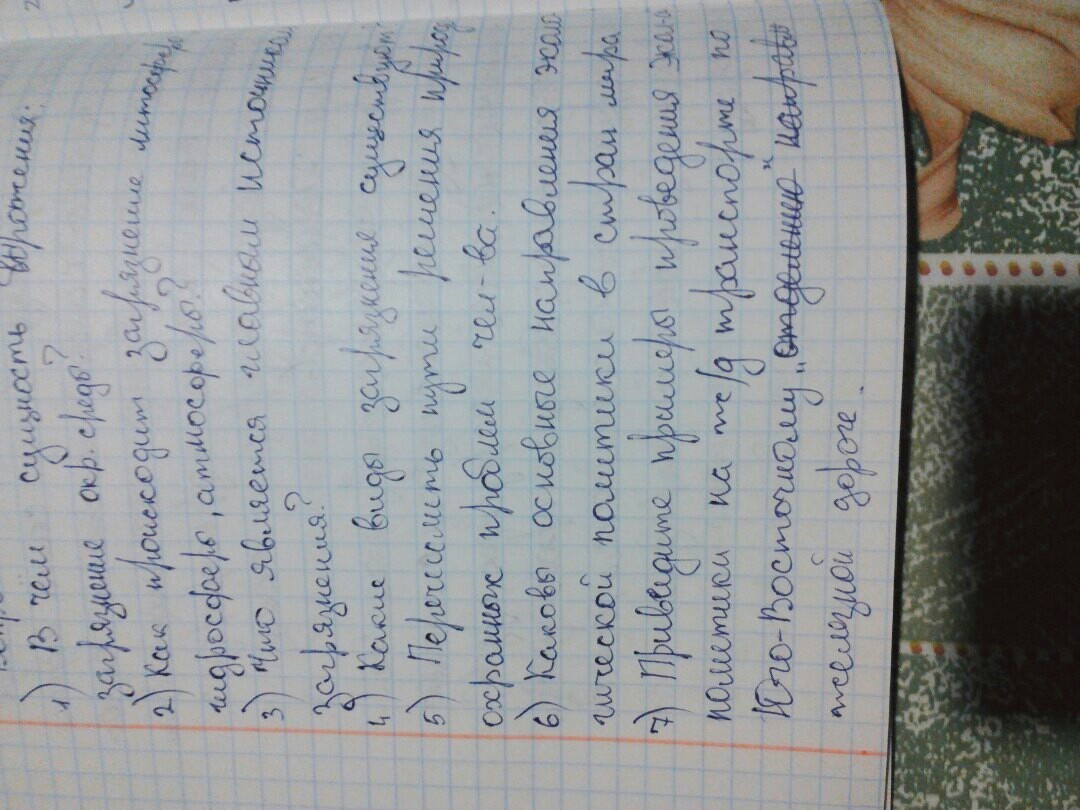 1) В чём сущность выражения:
загрязнение окр. среды?
2) Как происходит загрязнение литосферы
гидросферы, атмосферы?
3) Что является главным источником
загрязнения?
4) Какие виды загрязнения существуют
5) Перечислить пути решения природ
охранных проблем чел-ва.
6) Каковы основные направления эколо
гической политики в стран мира
7) Приведите примеры проведения экол-й
политики на ж/д транспорте по
Юго-Восточному „отделению" направл
железной дороге.